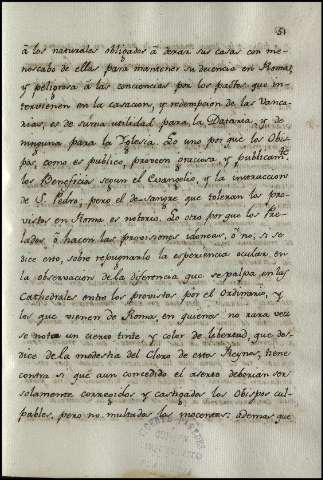 51
â los naturales obligados â dexar sus casas con me-
noscabo de ellas para mantener su decencia en Roma,
y peligrosa â las conciencias por los pactos que in-
tervienen en la casacion, y redempcion de las Vanca-
rias, es de suma utilidad para la Dataria, y de
ninguna para la Yglesia. Lo uno por que los Obis-
pos, como es publico, proveen graciosa y publicam.te
los Beneficios segun el Evangelio, y la instruccion
de S. Pedro; pero el de sangre que toleran los pro-
vistos en Roma es notorio. Lo otro por que los Pre-
lados, ô hacen las provisiones idoneas, ô no, si se
dice esto, sobre repugnarlo la esperiencia ocular, en
la observacion de la diferencia que se palpa en las
Cathedrales entre los provistos por el Ordinario, y
los que vienen de Roma, en quienes no rara vez
se nota un cierto tinte y color de libertad, que des-
dice de la modestia del Clero de estos Reynos, tiene
contra si que aun concedido el aserto deberian ser
solamente corregidos y castigados los Obispos cul-
pables, pero no multados los inocentes: ademas que